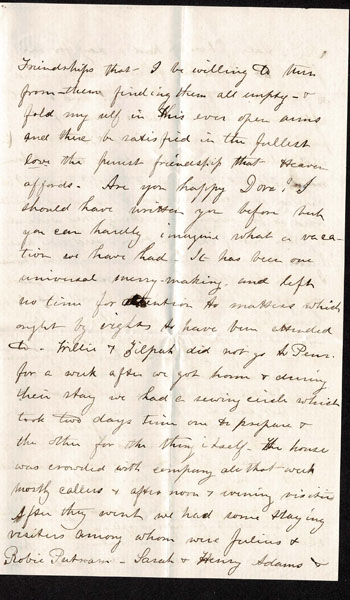 Friendships that I be willing to turn
from them finding them all empty - &
fold my self in this ever open arms
and there be satisfied in the fullest
love the purest friendship that Heaven
affords. Are you happy Dove? I
should have written you before but
you can hardly imagine what a vaca-
tion we have had. It has been one
universal merry-making, and left
no time for attention to matters which
ought by rights to have been attended
to - Willie & did not go to Penn.
for a week after we got home & during
their stay we had a sewing circle which
took two days time one to prepare &
the other for the thing itself - The house
was crowded with company all that week
mostly callers & afternoon & evening visitors
After they went we had some staying
visiters among whom were Julius &
Robie Putnam - Sarah & Henry Adams &